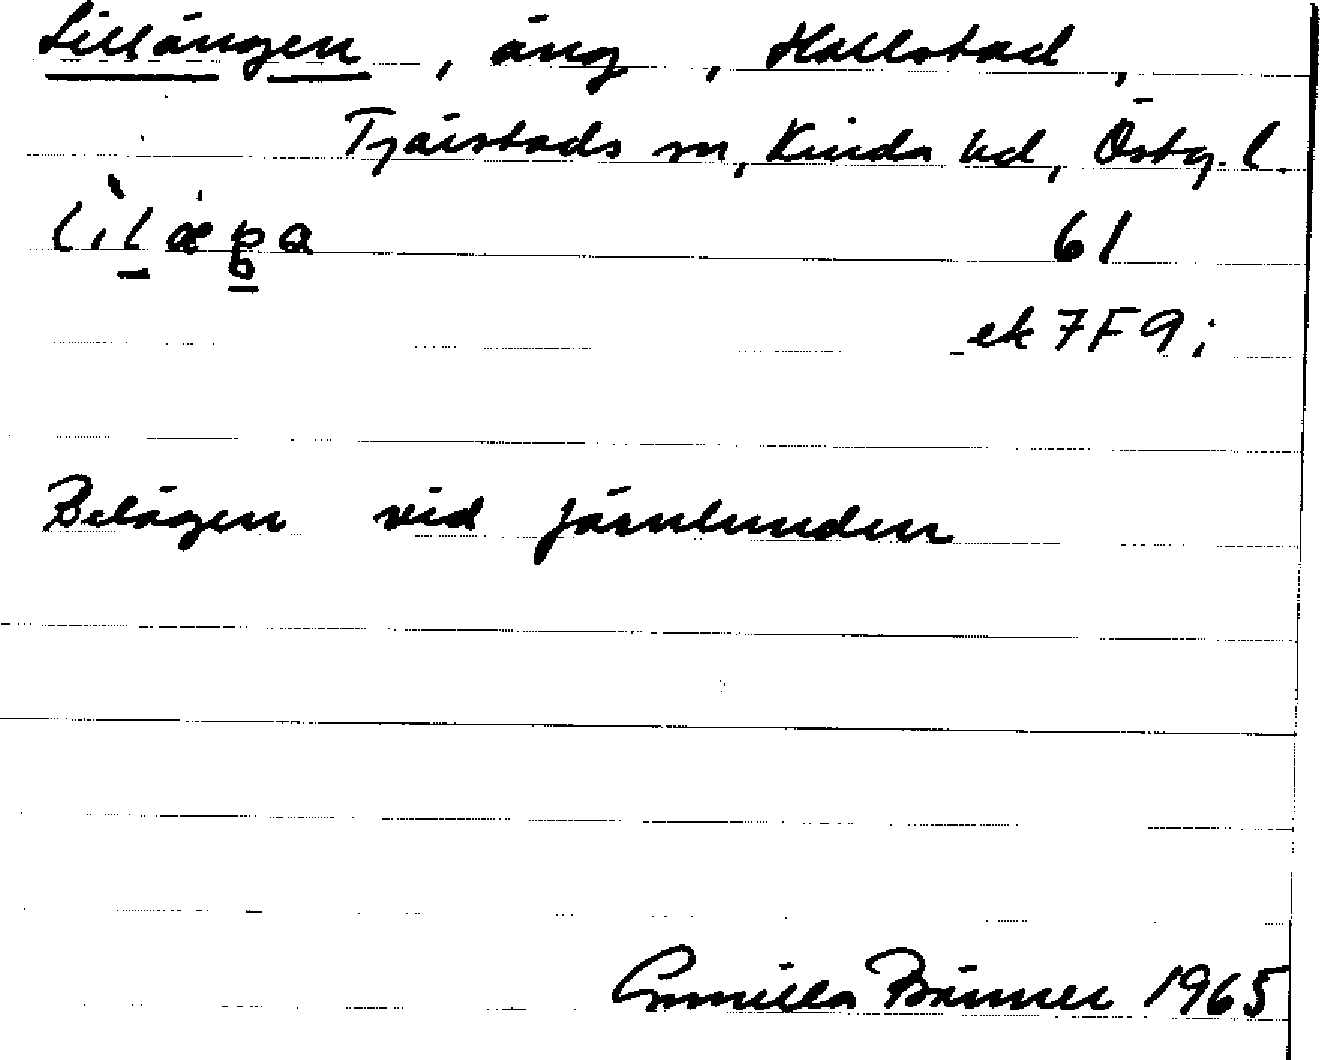 Lillängen, äng, Hallstad,
Tjärstads sn, Kinda hd, Östg. l.
61
ek 7F9i
Belägen vid Järnlunden
Gunilla Bänner 1965